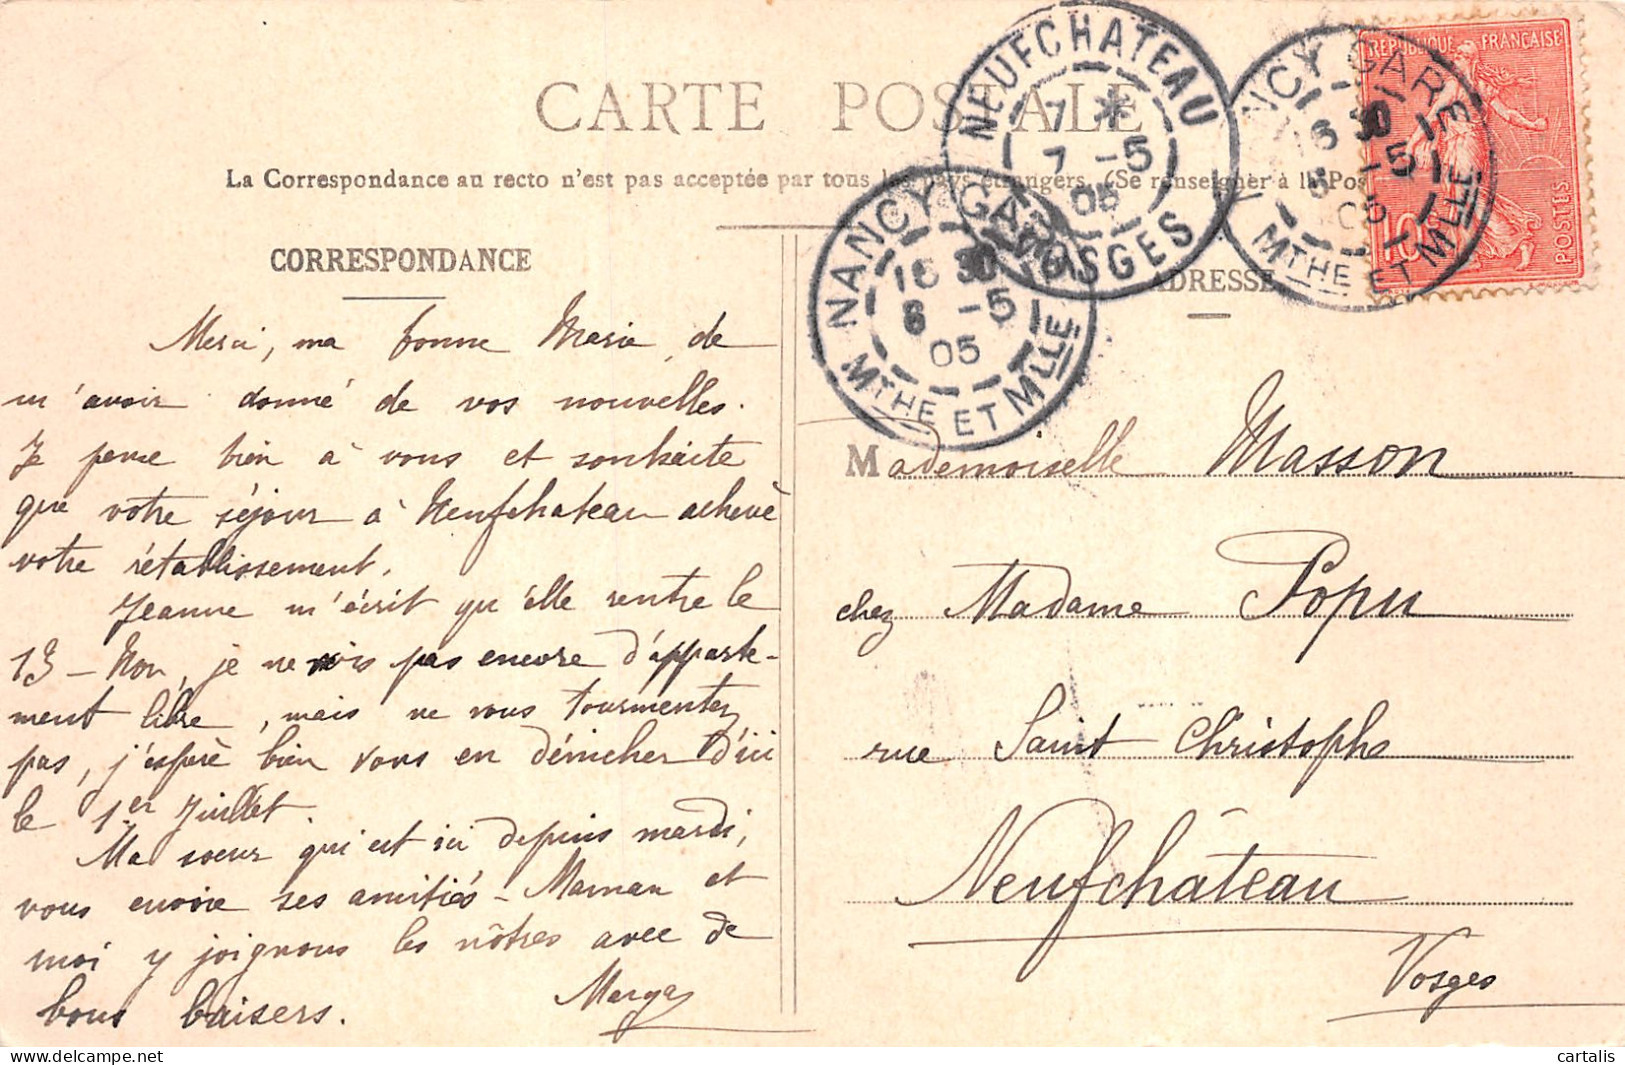 CARTE POSTALE
La Correspondance au recto n'est pas acceptée par tous les pays étrangers. (Se renseigner à la Pos
CORRESPONDANCE
Merci, ma bonne Marie, de
m'avoir donné de vos nouvelles.
Je pense bien à vous et souhaite
que votre séjour à Neufchateau achève
votre rétablissement.
Jeanne m'écrit qu'elle rentre le
13 - Non, je ne vois pas encore d'apparte-
ment libre, mais ne vous tourmentez
pas, j'espère bien vous en dénicher d'ici
le 1er Juillet.
Ma soeur qui est ici depuis mardi,
vous envoie ses amitiés - Maman et
moi y joignons les nôtres avec de
bons baisers.
ADRESSE
Mademoiselle Masson
chez Madame Popu
rue Saint Christophe
Neufchâteau
Vosges
NANCY GARE
16 30
6 -5
05
MTHE ET MLLE
NEUFCHATEAU
7 *
7 -5
05
VOSGES
NCY GARE
16 30
-5
05
MTHE ET MLLE
REPUBLIQUE FRANÇAISE
10
POSTES
cartalis